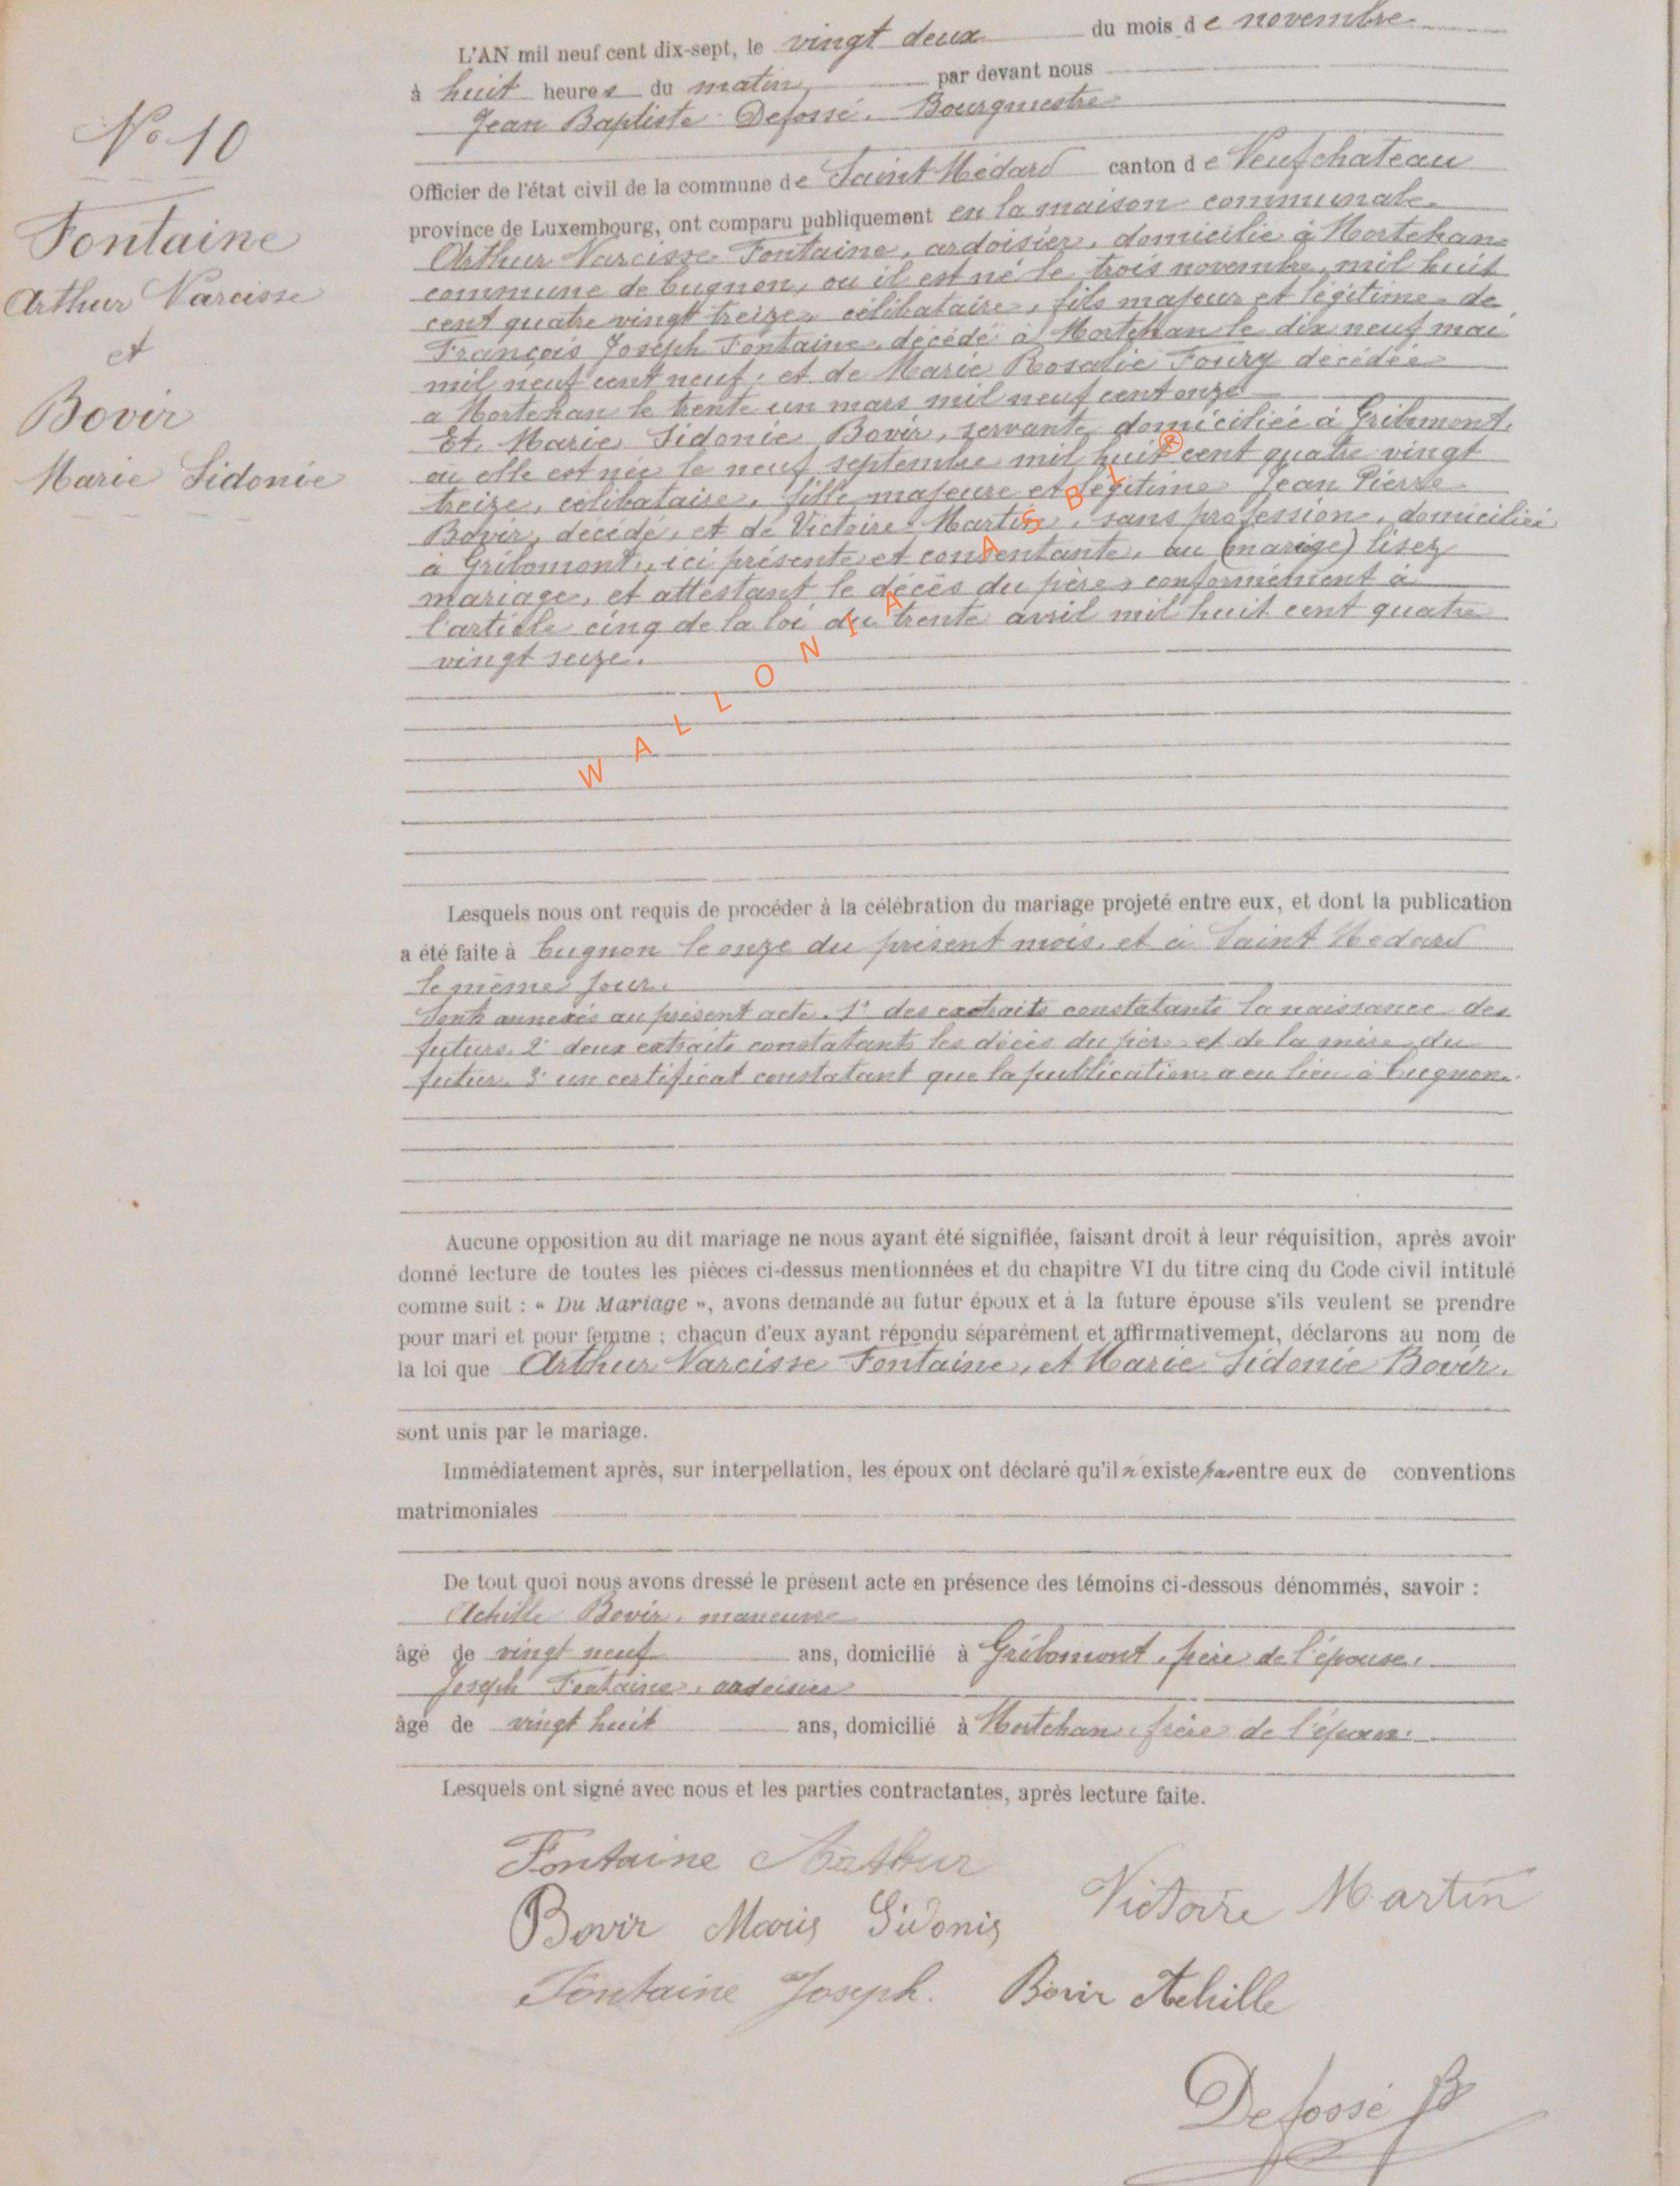 L'AN mil neuf cent dix-sept, le vingt deux du mois de novembre
à huit heures du matin, par devant nous
Jean Baptiste Defossé, Bourgmestre
Officier de l'état civil de la commune de Saint Médard canton de Neufchateau
province de Luxembourg, ont comparu publiquement en la maison communale.
Arthur Narcisse Fontaine, ardoisier, domicilié à Mortehan
commune de Cugnon, ou il est né le trois novembre mil huit
cent quatre vingt treize, célibataire, fils majeur et légitime de
François Joseph Fontaine, décédé à Mortehan le dix neuf mai
mil neuf cent neuf; et de Marie Rosalie Foury décédée
a Mortehan le trente un mars mil neuf cent onze
Et Marie Sidonie Bovir, servante, domiciliée à Gribomont,
ou elle est née le neuf septembre mil huit cent quatre vingt
treize, célibataire, fille majeure et légitime Jean Pierre
Bovir, décédé, et de Victoire Martin, sans profession, domiciliée
à Gribomont, ici présente et consentante, au (marige) lisez
mariage, et attestant le décès du père, conformément à
l'article cinq de la loi du trente avril mil huit cent quatre
vingt seize.
Nº 10
Fontaine
Arthur Narcisse
et
Bovir
Marie Sidonie
WALLONIA ASBL ®
Lesquels nous ont requis de procéder à la célébration du mariage projeté entre eux, et dont la publication
a été faite à Cugnon le onze du présent mois, et à Saint Médard
le même jour.
Sont annexés au présent acte. 1º des extraits constatants la naissance des
futurs. 2º deux extraits constatants les décès du père et de la mère du
futur. 3º un certificat constatant que la publication a eu lieu à Cugnon.
Aucune opposition au dit mariage ne nous ayant été signifiée, faisant droit à leur réquisition, après avoir
donné lecture de toutes les pièces ci-dessus mentionnées et du chapitre VI du titre cinq du Code civil intitulé
comme suit : « Du Mariage », avons demandé au futur époux et à la future épouse s'ils veulent se prendre
pour mari et pour femme ; chacun d'eux ayant répondu séparément et affirmativement, déclarons au nom de
la loi que Arthur Narcisse Fontaine, et Marie Sidonie Bovir,
sont unis par le mariage.
Immédiatement après, sur interpellation, les époux ont déclaré qu'il n'existe pas entre eux de conventions
matrimoniales
De tout quoi nous avons dressé le présent acte en présence des témoins ci-dessous dénommés, savoir :
Achille Bovir, manœuvre
âgé de vingt neuf ans, domicilié à Gribomont, frère de l'épouse,
Joseph Fontaine, ardoisier
âgé de vingt huit ans, domicilié à Mortehan, frère de l'époux.
Lesquels ont signé avec nous et les parties contractantes, après lecture faite.
Fontaine Arthur
Victoire Martin
Bovir Marie Sidonie
Fontaine Joseph. Bovir Achille
Defossé JB